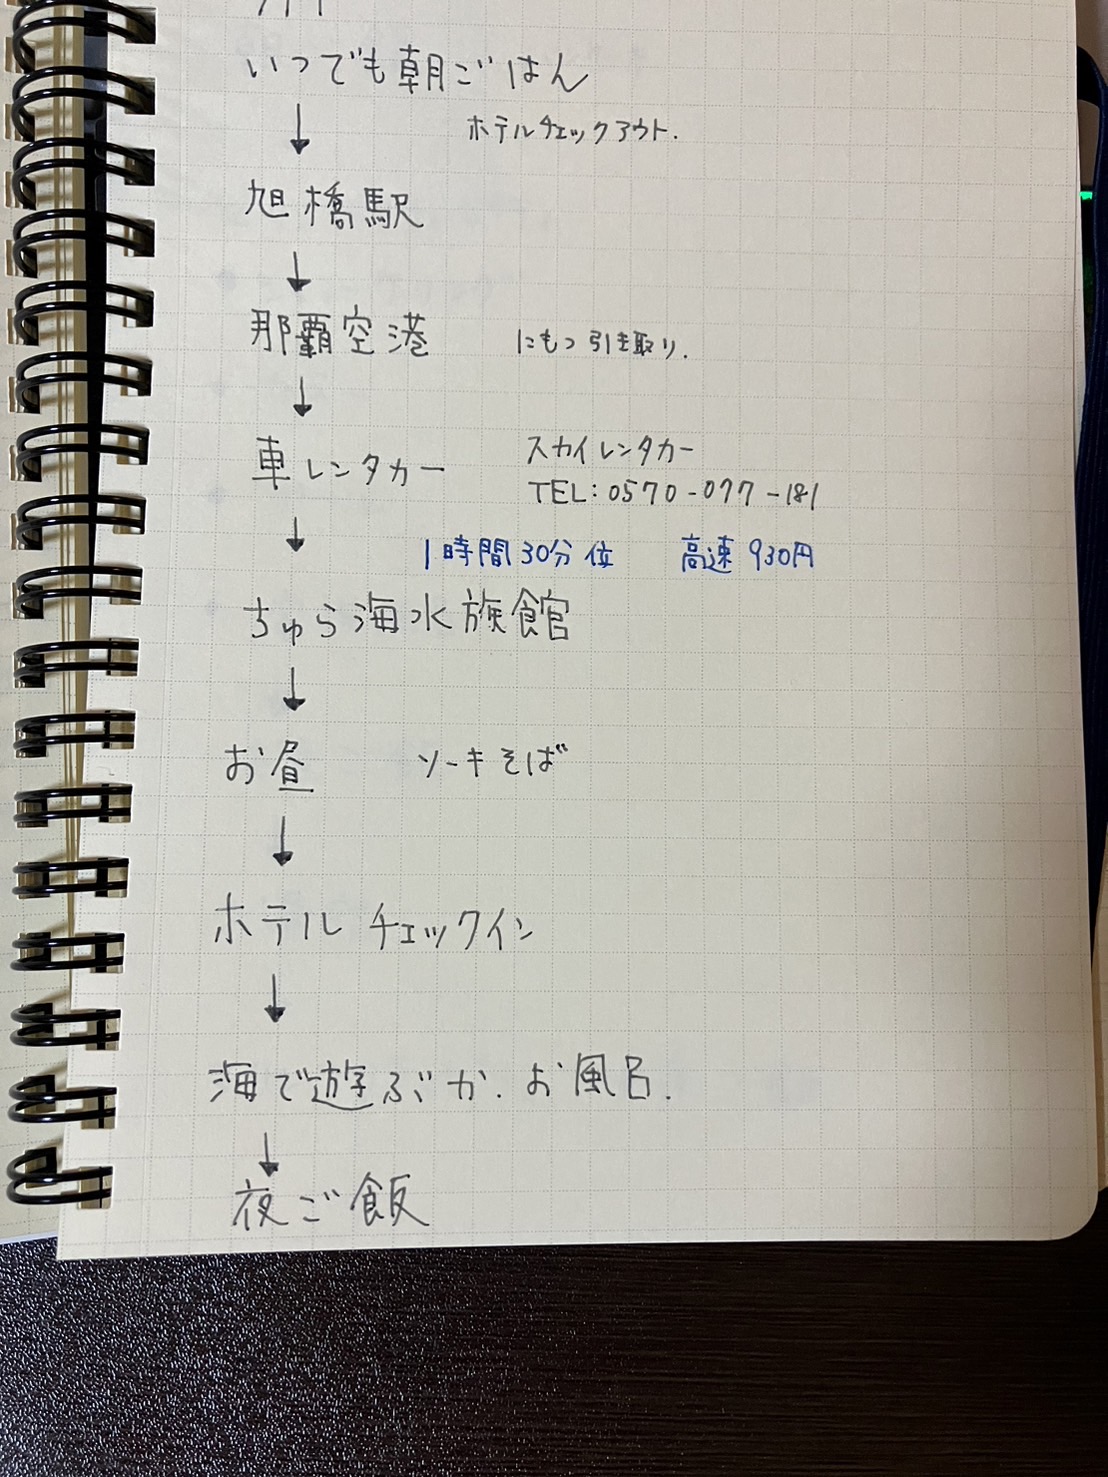 いつでも朝ごはん
↓
ホテルチェックアウト.
旭橋駅
↓
那覇空港 にもつ引き取り.
↓
車レンタカー スカイレンタカー
TEL:0570-077-181
↓
1時間30分位 高速930円
ちゅら海水族館
↓
お昼 ソーキそば
↓
ホテルチェックイン
↓
海で遊ぶか.お風呂.
↓
夜ご飯